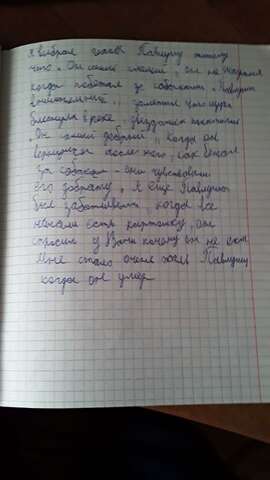 я выбрал главы Павлушу потому
что. Он самый смелый, он не испугался
когда побежал за собаками. Павлуша
внимательный,, заметил что щука
плеснула в реке, звёздочка покатилась
Он самый добрый,, когда он
вернулся после того, как бегал
за собакой - они чувствовали
его доброту, А ещё Павлуша
был заботливым, когда все
начали есть картошку, он
спросил у Вани почему он не ест.
Мне стало очень жаль Павлушу
когда он умер